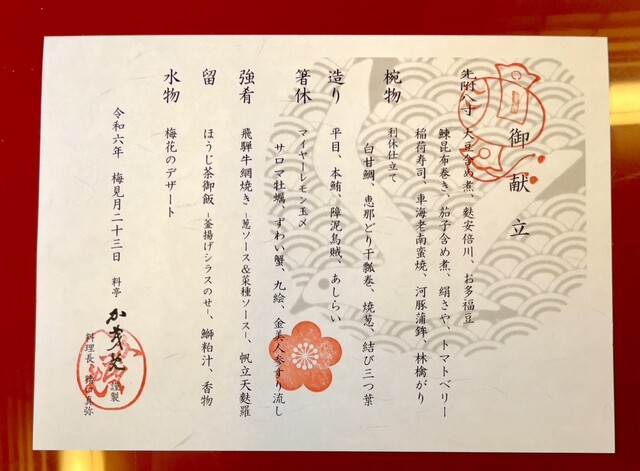 御献立
先附八寸 大豆含め煮、麩安倍川、お多福豆
鰊昆布巻き、茄子含め煮、絹さや、トマトベリー
稲荷寿司、車海老南蛮焼、河豚蒲鉾、林檎がり
椀物 利休仕立て
白甘鯛、恵那どり干瓢巻、焼葱、結び三つ葉
造り 平目、本鮪、障泥烏賊、あしらい
箸休 マイヤーレモン玉〆
サロマ牡蠣、ずわい蟹、九絵、金美人参すり流し
強肴 飛騨牛網焼き -葱ソース&菜種ソース-、帆立天麩羅
留 ほうじ茶御飯 -釜揚げシラスのせ-、鰤粕汁、香物
水物 梅花のデザート
令和六年 梅見月二十三日 料亭 か茂免 謹製
料理長 真弥